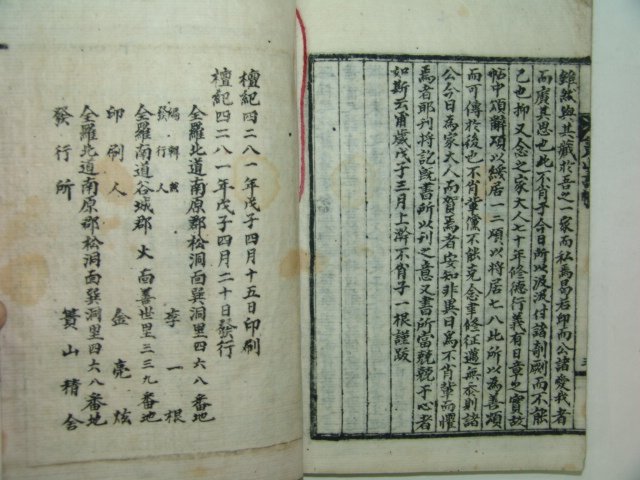 雖然與其藏於吾之一家而私焉曷若印而公諸愛我者
而廣其思也此不肖子今日所以汲汲付諸剞劂而不能
已也抑又念之家大人七十年修德行義有日章之實故
帖中頌辭頌以綏居一二頌以將居七八此所以為善頌
而可傳於後也不肖輩儻不能克念聿修征邁無忝則諸
公今日為家大人而賀焉者安知非異日為不肖輩而懼
焉者耶刊將訖旣書所以刊之意又書所當兢兢于心者
如斯云爾歲戊子三月上澣不肖子一根謹跋
檀紀四二八一年戊子四月十五日印刷
檀紀四二八一年戊子四月二十日發行
全羅北道南原郡松洞面巽洞里四六八番地
編輯兼
發行人 李一根
全羅南道谷城郡火面善世里三三九番地
印刷人 金亮炫
全羅北道南原郡松洞面巽洞里四六八番地
發行所 簣山精舍